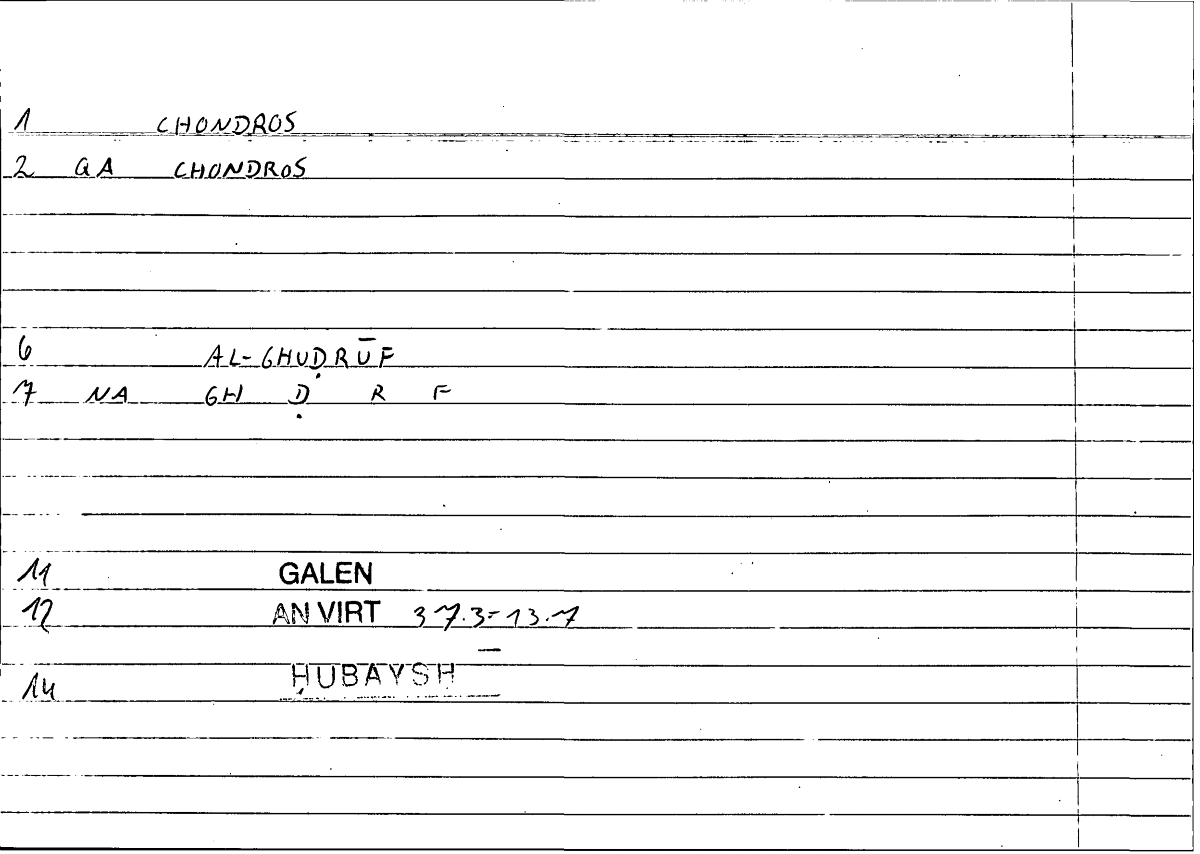 1 CHONDROS
2 QA CHONDROS
6 AL-GHUḌRŪF
7 NA GH Ḍ R F
11 GALEN
12 AN VIRT 37.3=13.7
14 ḤUBAYSH